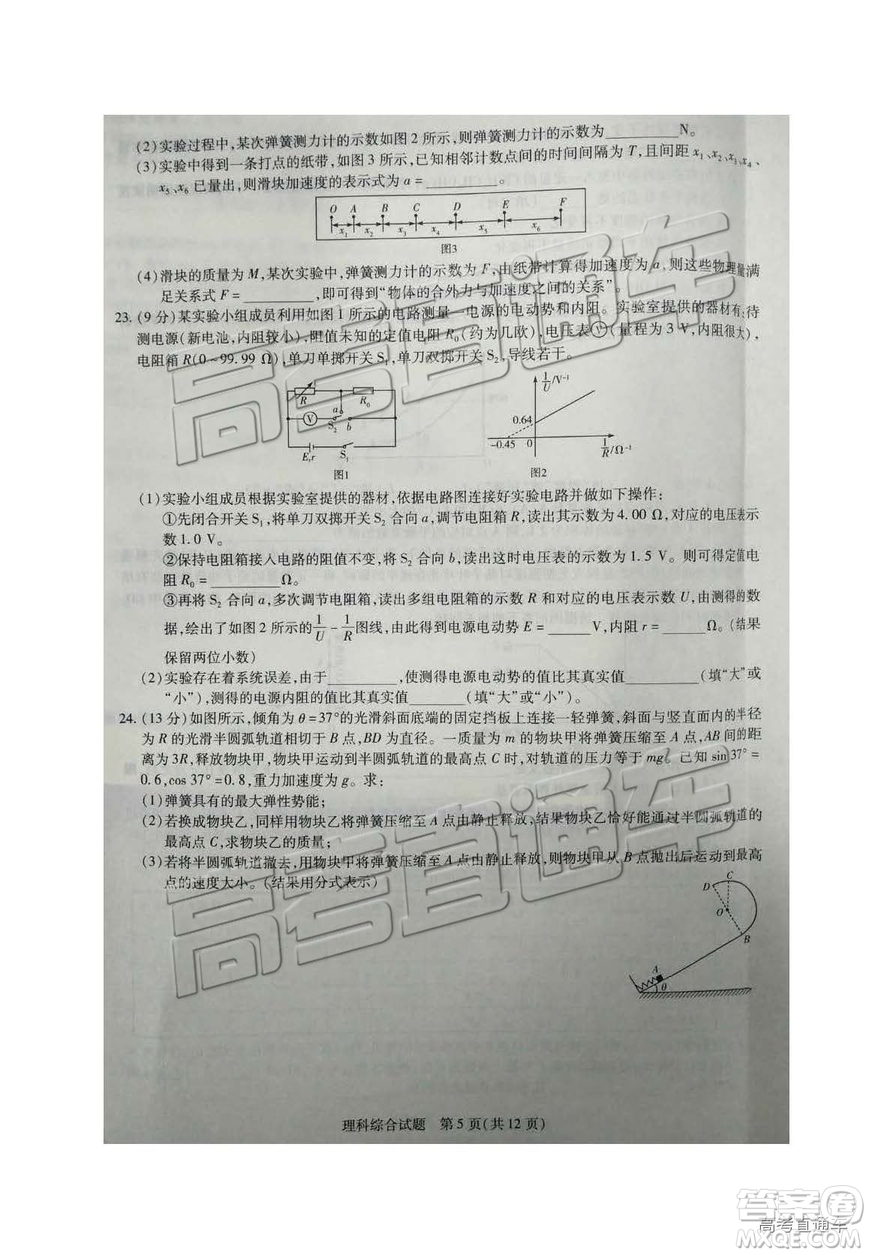 (2)实验过程中,某次弹簧测力计的示数如图 2 所示,则弹簧测力计的示数为________N。
(3)实验中得到一条打点的纸带,如图 3 所示,已知相邻计数点间的时间间隔为 T,且间距 x₁、x₂、x₃、x₄、
x₅、x₆ 已量出,则滑块加速度的表示式为 a = ________。
O A B C D E F
x₁ x₂ x₃ x₄ x₅ x₆
图3
(4)滑块的质量为 M,某次实验中,弹簧测力计的示数为 F,由纸带计算得加速度为 a,则这些物理量满
足关系式 F = ________,即可得到“物体的合外力与加速度之间的关系”。
23.(9 分)某实验小组成员利用如图 1 所示的电路测量一电源的电动势和内阻。实验室提供的器材有:待
测电源(新电池,内阻较小),阻值未知的定值电阻 R₀(约为几欧),电压表Ⓥ(量程为 3 V,内阻很大),
电阻箱 R(0~99.99 Ω),单刀单掷开关 S₁,单刀双掷开关 S₂,导线若干。
R R₀
V a
S₂ b
E,r S₁
图1
1/U /V⁻¹
0.64
-0.45 0 1/R /Ω⁻¹
图2
(1)实验小组成员根据实验室提供的器材,依据电路图连接好实验电路并做如下操作:
①先闭合开关 S₁,将单刀双掷开关 S₂ 合向 a,调节电阻箱 R,读出其示数为 4.00 Ω,对应的电压表示
数 1.0 V。
②保持电阻箱接入电路的阻值不变,将 S₂ 合向 b,读出这时电压表的示数为 1.5 V。则可得定值电
阻 R₀ = ________Ω。
③再将 S₂ 合向 a,多次调节电阻箱,读出多组电阻箱的示数 R 和对应的电压表示数 U,由测得的数
据,绘出了如图 2 所示的 1/U - 1/R 图线,由此得到电源电动势 E = ______V,内阻 r = ______Ω。(结果
保留两位小数)
(2)实验存在着系统误差,由于________,使测得电源电动势的值比其真实值________(填“大”或
“小”),测得的电源内阻的值比其真实值______(填“大”或“小”)。
24.(13 分)如图所示,倾角为 θ=37°的光滑斜面底端的固定挡板上连接一轻弹簧,斜面与竖直面内的半径
为 R 的光滑半圆弧轨道相切于 B 点,BD 为直径。一质量为 m 的物块甲将弹簧压缩至 A 点,AB 间的距
离为 3R,释放物块甲,物块甲运动到半圆弧轨道的最高点 C 时,对轨道的压力等于 mg。已知 sin 37° =
0.6,cos 37° = 0.8,重力加速度为 g。求:
(1)弹簧具有的最大弹性势能;
(2)若换成物块乙,同样用物块乙将弹簧压缩至 A 点由静止释放,结果物块乙恰好能通过半圆弧轨道的
最高点 C,求物块乙的质量;
(3)若将半圆弧轨道撤去,用物块甲将弹簧压缩至 A 点由静止释放,则物块甲从 B 点抛出后运动到最高
点的速度大小。(结果用分式表示)
C
D
O
B
A
θ
理科综合试题 第 5 页(共 12 页)
高考直通车
高考直通车
答案圈
高考直通车
MXQE.COM